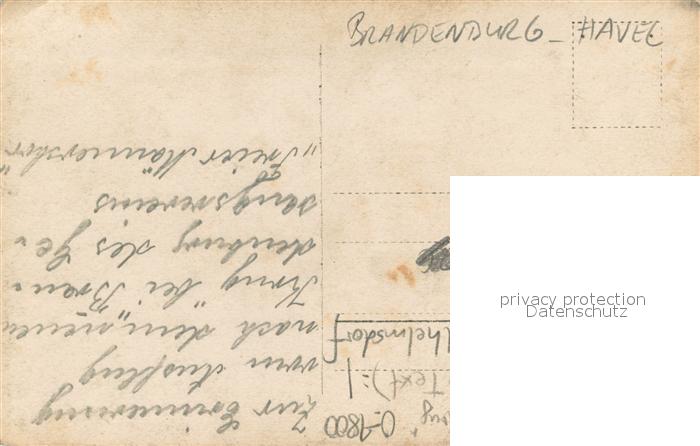 BRANDENBURG - HAVEL
Zur Erinnerung
vom Ausflug
nach dem "neuen
Krug" bei Bran-
denburg des Ge-
sangvereins
"Freier Männerchor"
helmsdorf
Text) = 1
0-1800
privacy protection
Datenschutz